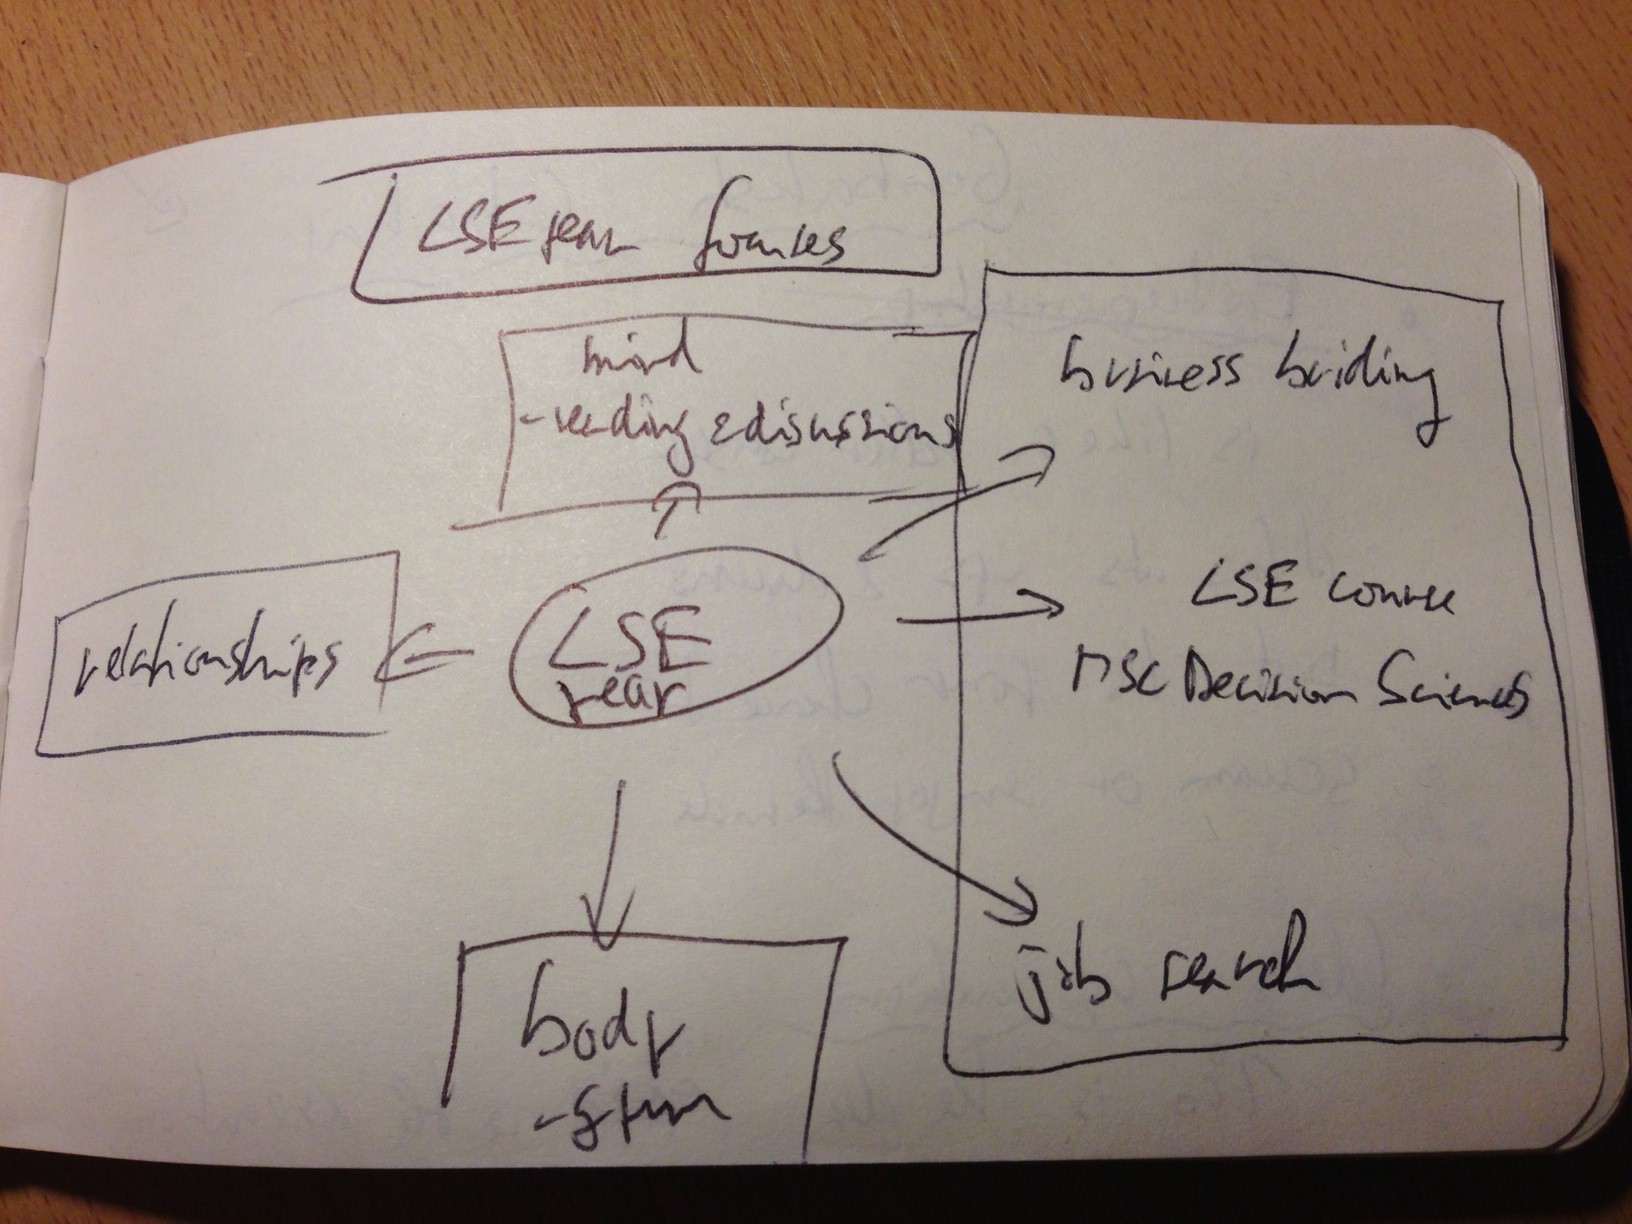 LSE year focuses
mind
- reading & discussions
business building
LSE course
MSC Decision Sciences
job search
relationships
LSE
year
body
- gym